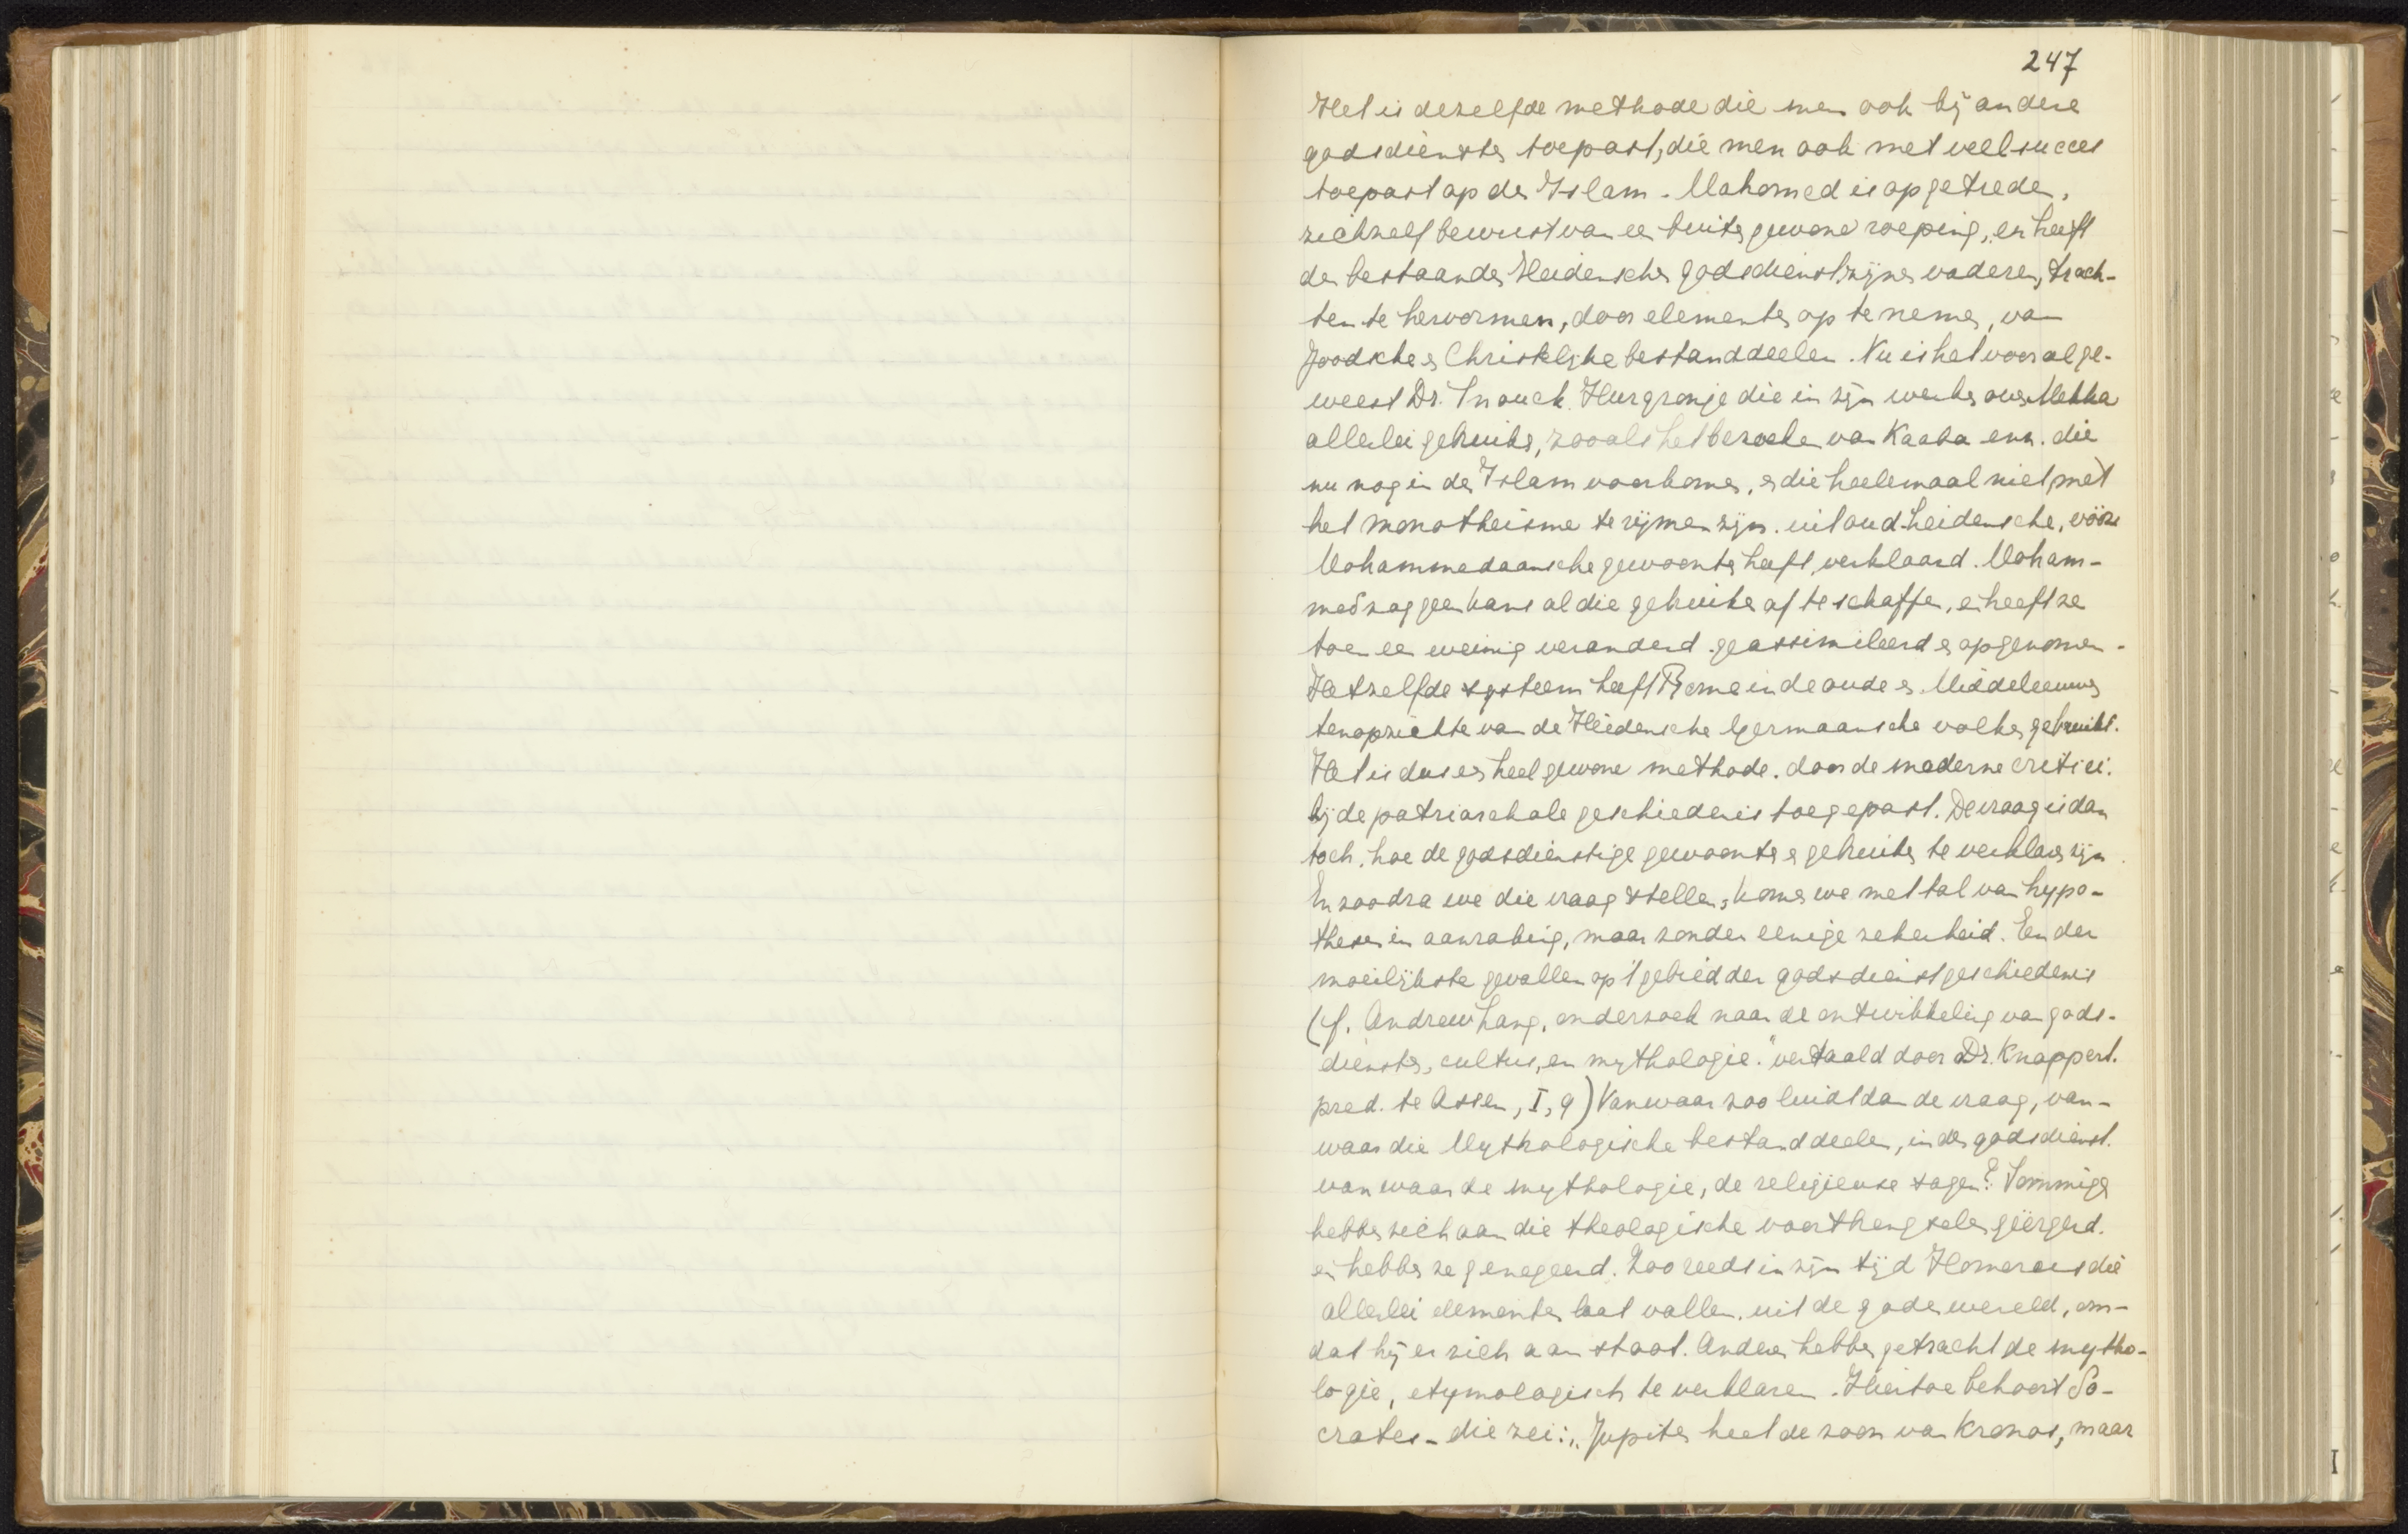 247
Het is dezelfde methode die men ook bij andere
godsdiensten toepast, die men ook met veel succes
toepast op den Islam. Mahomed is opgetreden,
zichzelf bewust van een buitengewone roeping, en heeft
den bestaanden Heidenschen godsdienst zijner vaderen, trach-
ten te hervormen, door elementen op te nemen, van
Joodsche en Christelijke bestanddeelen. Nu is het vooral ge-
weest Dr. Snouck Hurgronje die in zijn werken over Mekka
allerlei gebruiken, zooals het bezoeken van Kaaba enz. die
nu nog in den Islam voorkomen, en die heelemaal niet met
het monotheïsme te rijmen zijn. uit oud heidensche, vóór
Mohammedaansche gewoonten heeft verklaard. Moham-
med zag geen kans al die gebruiken af te schaffen, en heeft ze
toen een weinig veranderd geassimileerd en opgenomen.
Hetzelfde systeem heeft Rome in de oude en Middeleeuwen
ten opzichte van de Heidensche Germaansche volken gebruikt.
Het is dus een heel gewone methode. door de moderne critici.
bij de patriarchale geschiedenis toegepast. De vraag is dan
toch, hoe de godsdienstige gewoonten en gebruiken te verklaren zijn.
En zoodra we die vraag stellen, komen we met tal van hypo-
thesen in aanraking, maar zonder eenige zekerheid. Een der
moeilijkste gevallen op 't gebied der godsdienstgeschiedenis
(cf. Andrew Lang, onderzoek naar de ontwikkeling van gods-
diensten, cultus, en mythologie." vertaald door Dr. Knappert.
pred. te Assen, I, 9) Vanwaar zoo luidt dan de vraag, van-
waar die Mythologische bestanddeelen, in den godsdienst.
van waar de mythologie, de religieuse sagen? Sommigen
hebben zich aan die theologische voorthengselen geërgerd.
en hebben ze genegeerd. Zoo reeds in zijn tijd Homerous die
allerlei elementen laat vallen, uit de godenwereld, om-
dat hij er zich aan stoot. Anderen hebben getracht de mytho-
logie, etymologisch te verklaren. Hiertoe behoort So-
crates - die zei: „Jupiter heet de zoon van Kronos, maar